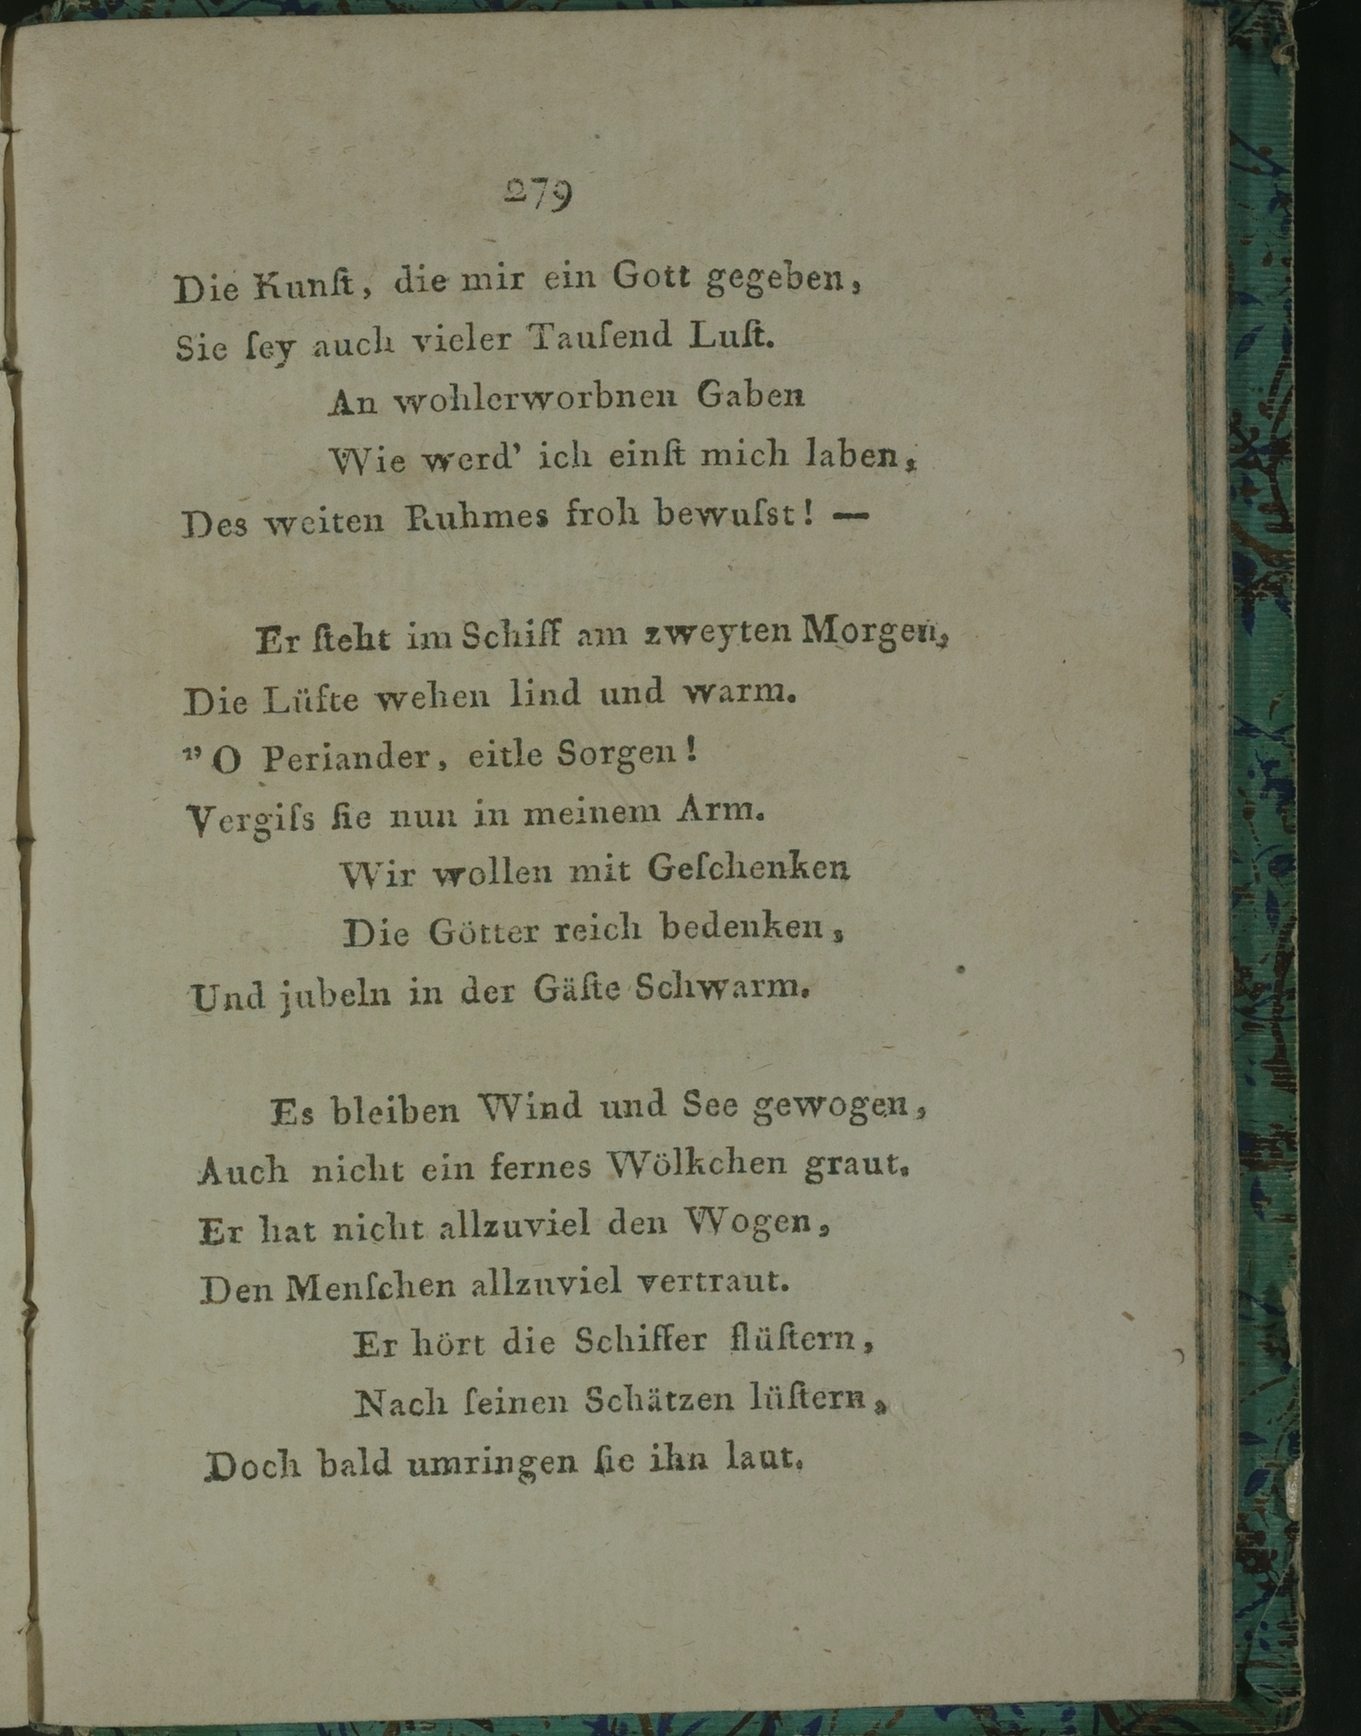 279
Die Kunſt, die mir ein Gott gegeben,
Sie ſey auch vieler Tauſend Luſt.
An wohlerworbnen Gaben
Wie werd’ ich einſt mich laben,
Des weiten Ruhmes froh bewuſst! —
Er ſteht im Schiff am zweyten Morgen,
Die Lüfte wehen lind und warm.
”O Periander, eitle Sorgen!
Vergiſs ſie nun in meinem Arm.
Wir wollen mit Geſchenken
Die Götter reich bedenken,
Und jubeln in der Gäſte Schwarm.
Es bleiben Wind und See gewogen,
Auch nicht ein fernes Wölkchen graut.
Er hat nicht allzuviel den Wogen,
Den Menſchen allzuviel vertraut.
Er hört die Schiffer flüſtern,
Nach ſeinen Schätzen lüſtern,
Doch bald umringen ſie ihn laut.